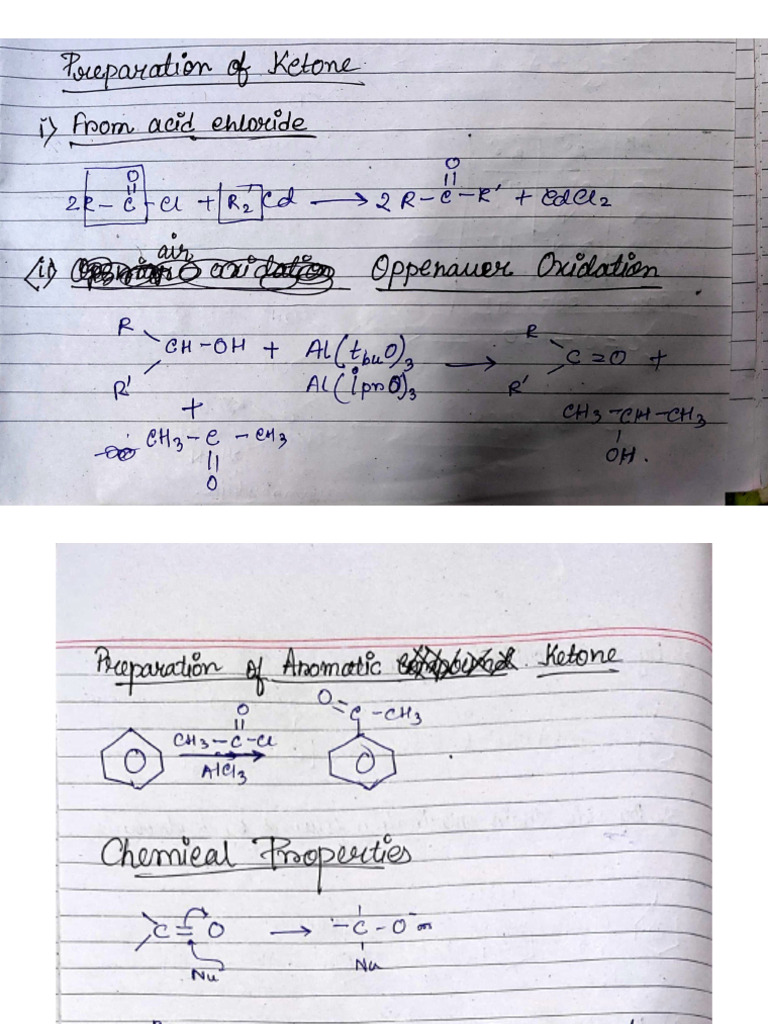 Preparation of Ketone
i) From acid chloride
2R-C(=O)-Cl + R₂'Cd ⟶ 2 R-C(=O)-R' + CdCl₂
air
ii) Oppenauer Oxidation
R
R'
CH-OH + Al(tbuO)₃ ⟶
Al(iprO)₃
R
R'
C=O +
+
CH₃-C(=O)-CH₃
CH₃-CH-CH₃
OH.
Preparation of Aromatic Ketone
CH₃-C(=O)-Cl
AlCl₃
O=C-CH₃
Chemical Properties
C=O ⟶ -C-O⁻
Nu
Nu